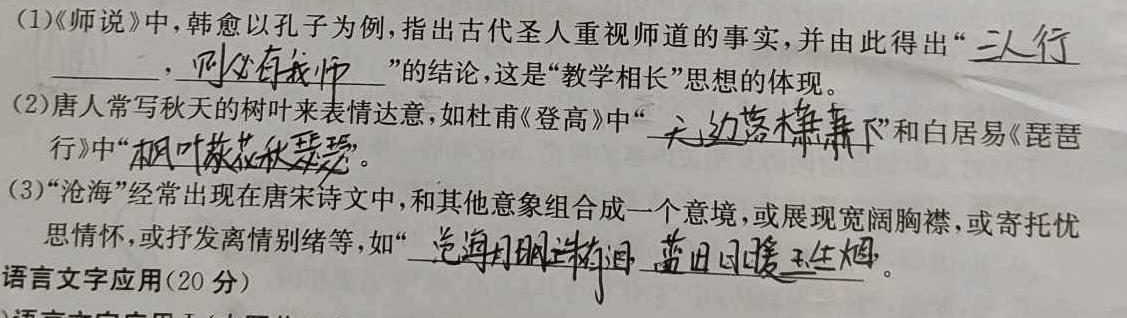 (1)《师说》中,韩愈以孔子为例,指出古代圣人重视师道的事实,并由此得出“三人行
,则必有我师”的结论,这是“教学相长”思想的体现。
(2)唐人常写秋天的树叶来表情达意,如杜甫《登高》中“无边落木萧萧下”和白居易《琵琶
行》中“枫叶荻花秋瑟瑟”。
(3)“沧海”经常出现在唐宋诗文中,和其他意象组合成一个意境,或展现宽阔胸襟,或寄托忧
思情怀,或抒发离情别绪等,如“沧海月明珠有泪 蓝田日暖玉生烟。
语言文字应用(20分)